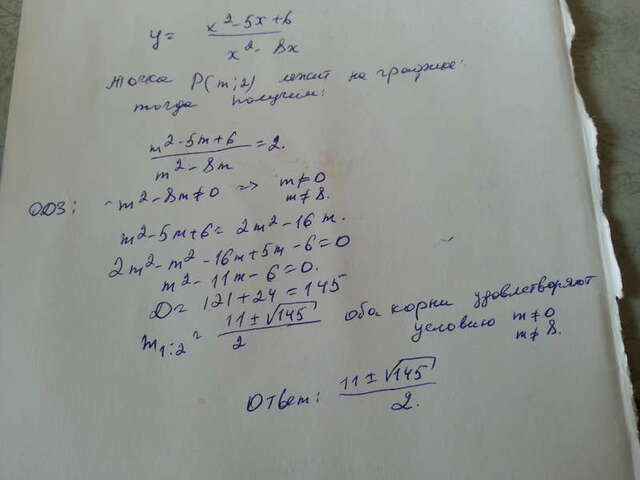 y = (x² - 5x + 6) / (x² - 8x)
Точка P(m; 2) лежит на графике.
тогда получим:
(m² - 5m + 6) / (m² - 8m) = 2.
ОДЗ: m² - 8m ≠ 0 => m ≠ 0
m ≠ 8.
m² - 5m + 6 = 2m² - 16m.
2m² - m² - 16m + 5m - 6 = 0
m² - 11m - 6 = 0.
D = 121 + 24 = 145
m₁;₂ = (11 ± √145) / 2 оба корни удовлетворяют
условию m ≠ 0
m ≠ 8.
Ответ: (11 ± √145) / 2.